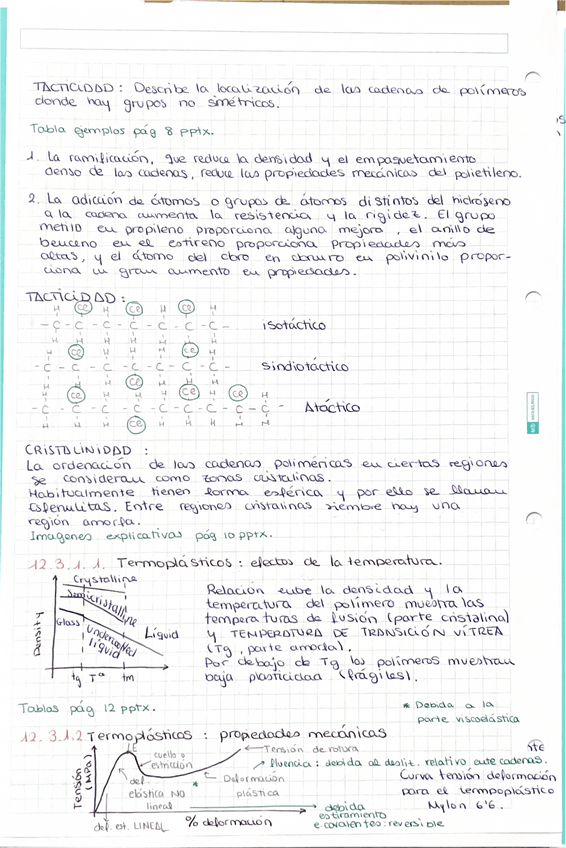 TACTICIDAD: Describe la localización de las cadenas de polímeros
donde hay grupos no simétricos.
Tabla ejemplos pág 8 pptx.
1. La ramificación, que reduce la densidad y el empaquetamiento
denso de las cadenas, reduce las propiedades mecánicas del polietileno.
2. La adicción de átomos o grupos de átomos distintos del hidrógeno
a la cadena aumenta la resistencia y la rigidez. El grupo
metilo en propileno proporciona alguna mejora, el anillo de
benceno en el estireno proporciona propiedades más
altas, y el átomo del cloro en cloruro en polivinilo propor-
ciona un gran aumento en propiedades.
TACTICIDAD:
H Cl H Cl H Cl H
-C-C-C-C-C-C-C- isotáctico
H H H H H H H
H Cl H H H Cl H
-C-C-C-C-C-C-C- Sindiotáctico
H H H Cl H H H
H Cl H H H Cl H Cl H
-C-C-C-C-C-C-C-C-C- Atáctico
H H H Cl H H H H H
CRISTALINIDAD:
La ordenación de las cadenas poliméricas en ciertas regiones
se consideran como zonas cristalinas.
Habitualmente tienen forma esférica y por ello se llaman
Esferulitas. Entre regiones cristalinas siempre hay una
región amorfa.
Imagenes explicativas pág 10 pptx.
12.3.1.1. Termoplásticos: efectos de la temperatura.
Crystalline
Semicristalline
Glass
Undercooled
liquid
Liquid
Density
tg Tª tm
Relación entre la densidad y la
temperatura del polímero muestra las
temperaturas de fusión (parte cristalina)
y TEMPERATURA DE TRANSICIÓN VÍTREA
(Tg, parte amorfa).
Por debajo de Tg los polímeros muestran
baja plasticidad (frágiles).
Tablas pág 12 pptx.
* Debida a la
parte viscoelástica
12.3.1.2 Termoplásticos: propiedades mecánicas
LE
cuello o
estricción
Tensión de rotura
Fluencia: debida al desliz. relativo entre cadenas.
def.
elástica NO
lineal
*
Deformación
plástica
Tensión
(MPa)
def. el. LINEAL
% deformación
debida
estiramiento
e.covalentes: reversible
Curva tensión deformación
para el termpoplástico
Nylon 6'6.